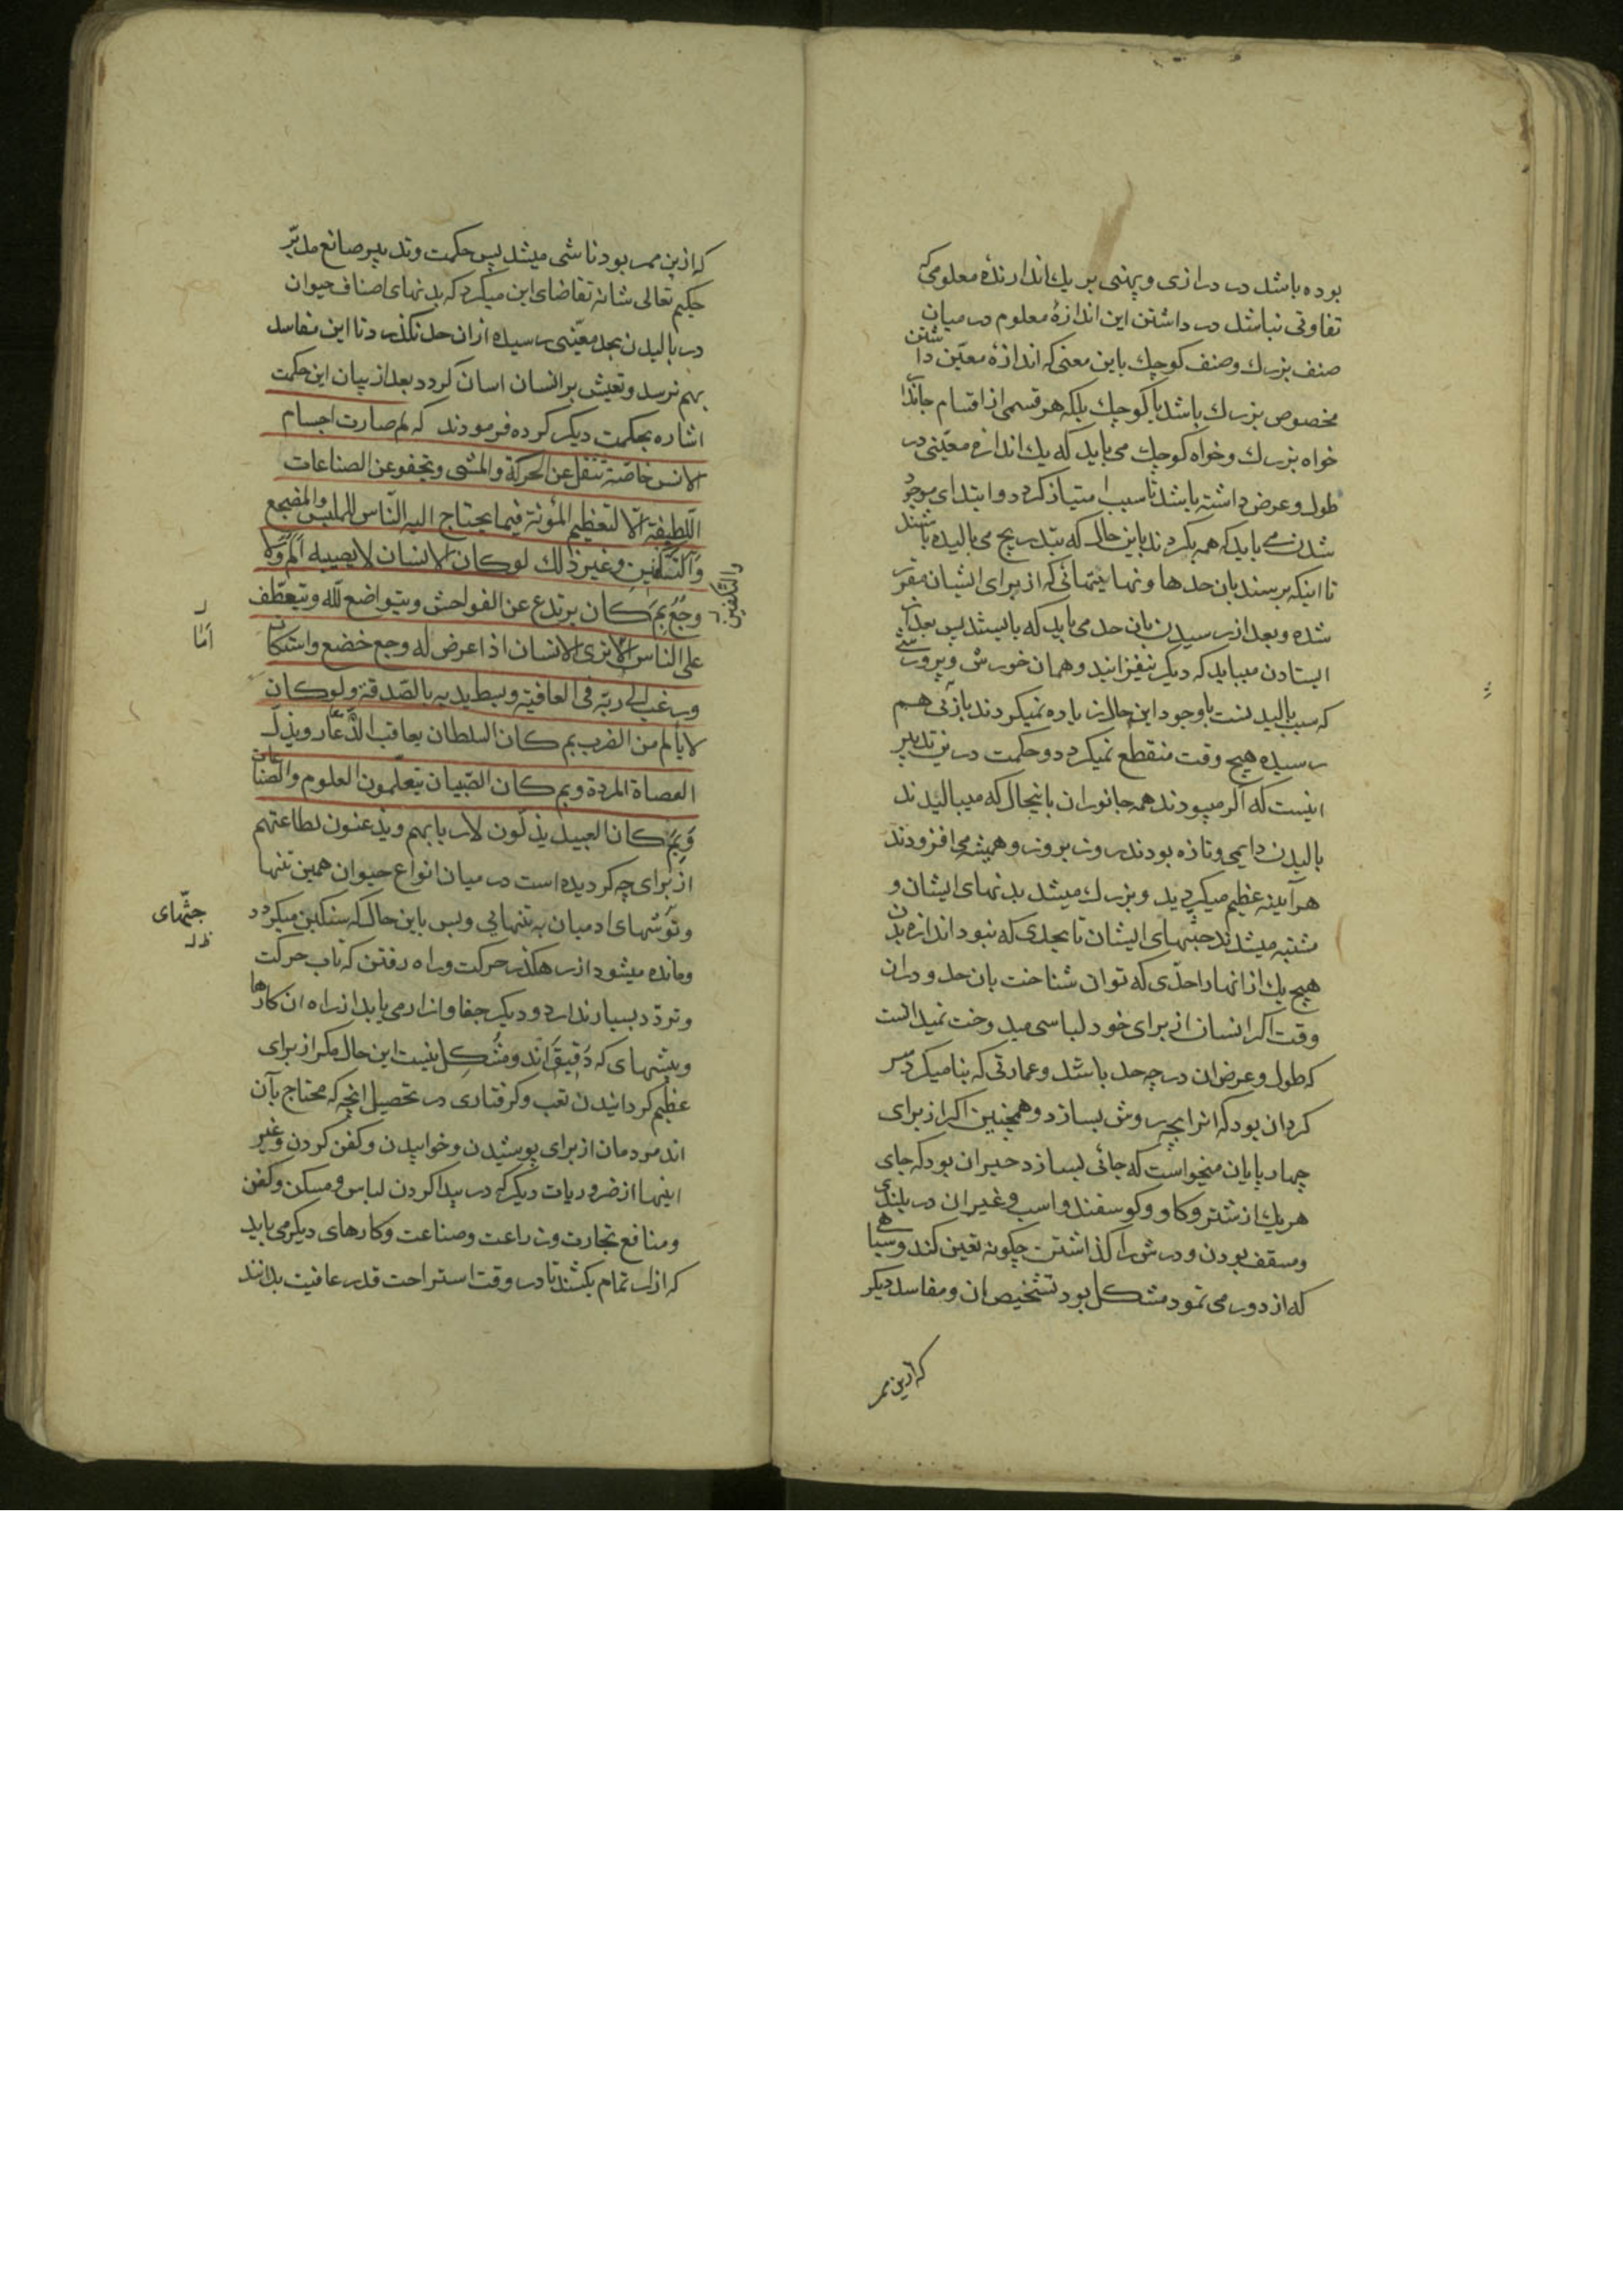 بوده باشد در درازی و پهنی بر یك اندازندهٔ معلومی که
تفاوتی نباشد در داشتن این اندازهٔ معلوم در میان
صنف بزرك و صنف كوچك باین معنی که اندازهٔ معیّن داشتن
مخصوص بزرك باشد یا كوچك بلکه هر قسمی از اقسام جاندار
خواه بزرك و خواه كوچك می باید که یك اندازه معیّنی در
طول و عرض داشته باشد تا سبب امتیاز کردد و ابتدای موجود
شدن می باید که همه بکردند باین حال که بتدریج می بالیده باشند
تا اینکه برسند بان حدها و نهایتهائی که از برای ایشان مقرر
شده و بعد از رسیدن بان حد می باید که بایستند پس بعد از
ایستادن میباید که دیکر نیفزایند و همان خورش و پرورشی
که سبب بالیدنست باوجود این حال زیاده نمیکردند بازئی هم
رسیده هیچ وقت منقطع نمیکردد و حکمت درین تدبیر
اینست که اگر میبودند همه جانوران باینحال که میبالیدند
بالیدن دایمی و تازه بودند روز بروز و همیشه می افزودند
هرآینه عظیم میکردید و بزرك میشد بدنهای ایشان و
مشتبه میشدند جثّهای ایشان تا بحدی که نبود اندازه بدن
هیچ یك از انها را حدّی که توان شناخت بان حد و دران
وقت اکر انسان از برای خود لباسی میدوخت نمیدانست
که طول و عرض ان در چه حد باشد و عمارتی که بنا میکرد سر
کردان بود که انرا بچه روش بسازد و همچنین اکر از برای
چهارپایان میخواست که جائی بسازد حیران بود که جای
هر یك از شتر و کاو و کوسفند و اسب و غیر ان در بلندی
و مسقف بودن و درش را کذاشتن چکونه تعین کند و سیاهی
که از دور می نمود مشکل بود تشخیص ان و مفاسد دیکر
که ازین ممر
که ازین ممر بود ناشی میشد پس حکمت و تدبیر صانع مدبّر
حکیم تعالی شانه تقاضای این میکرد که بدنهای اصناف حیوان
در بالیدن بحد معیّنی رسیده از ان حد نکذرد تا این مفاسد
بهم نرسد و تعیش بر انسان اسان کردد بعد از بیان این حکمت
اشاره بحکمت دیکر کرده فرمودند که لم صارت اجسام
الانس خاصّة تنقل عن الحرکة و المشی و تجفو عن الصناعات
اللّطیفة الّا لتعظیم المؤنة فیما یحتاج الیه النّاس للملبس و المضجع
و التّکفین و غیر ذلك لو کان الانسان لا یصیبه الم و لا
والتّکفین
وجع بم کان یرتدع عن الفواحش و یتواضع للّه و یتعطّف
علی الناس الا تری الانسان اذا عرض له وجع خضع و استکان
اَمَا
و رغب الی ربّه فی العافیة و بسط یدیه بالصّدقة و لو کان
لا یألم من الضرب بم کان السلطان یعاقب الدّعّار و یذلّ
العصاة المردة و بم کان الصّبیان یتعلّمون العلوم و الصناعات
وَبِمَ کان العبید یذلّون لاربابهم و یذعنون لطاعتهم
از برای چه کردیده است در میان انواع حیوان همین تنها
و توشهای ادمیان به تنهایی و بس باین حال که سنکین میکردد
جثّهای
ظ ل
و مانده میشود از رهکذر حرکت و راه رفتن که تاب حرکت
و تردّد بسیار ندارد و دیکر جفا و ازار می یابد از راه ان کارها
و پیشهای که دَقیقَ اند و مشکل نیست این حال مکر از برای
عظیم کردانیدن تعب و کرفتاری در تحصیل انچه که محتاج بآن
اند مردمان از برای پوشیدن و خوابیدن و کفن کردن و غیر
اینها از ضروریات دیکر که در پیدا کردن لباس و مسکن و کفن
و منافع تجارت و زراعت و صناعت و کارهای دیکر می باید
که ازار تمام بکشند تا در وقت استراحت قدر عافیت بدانند